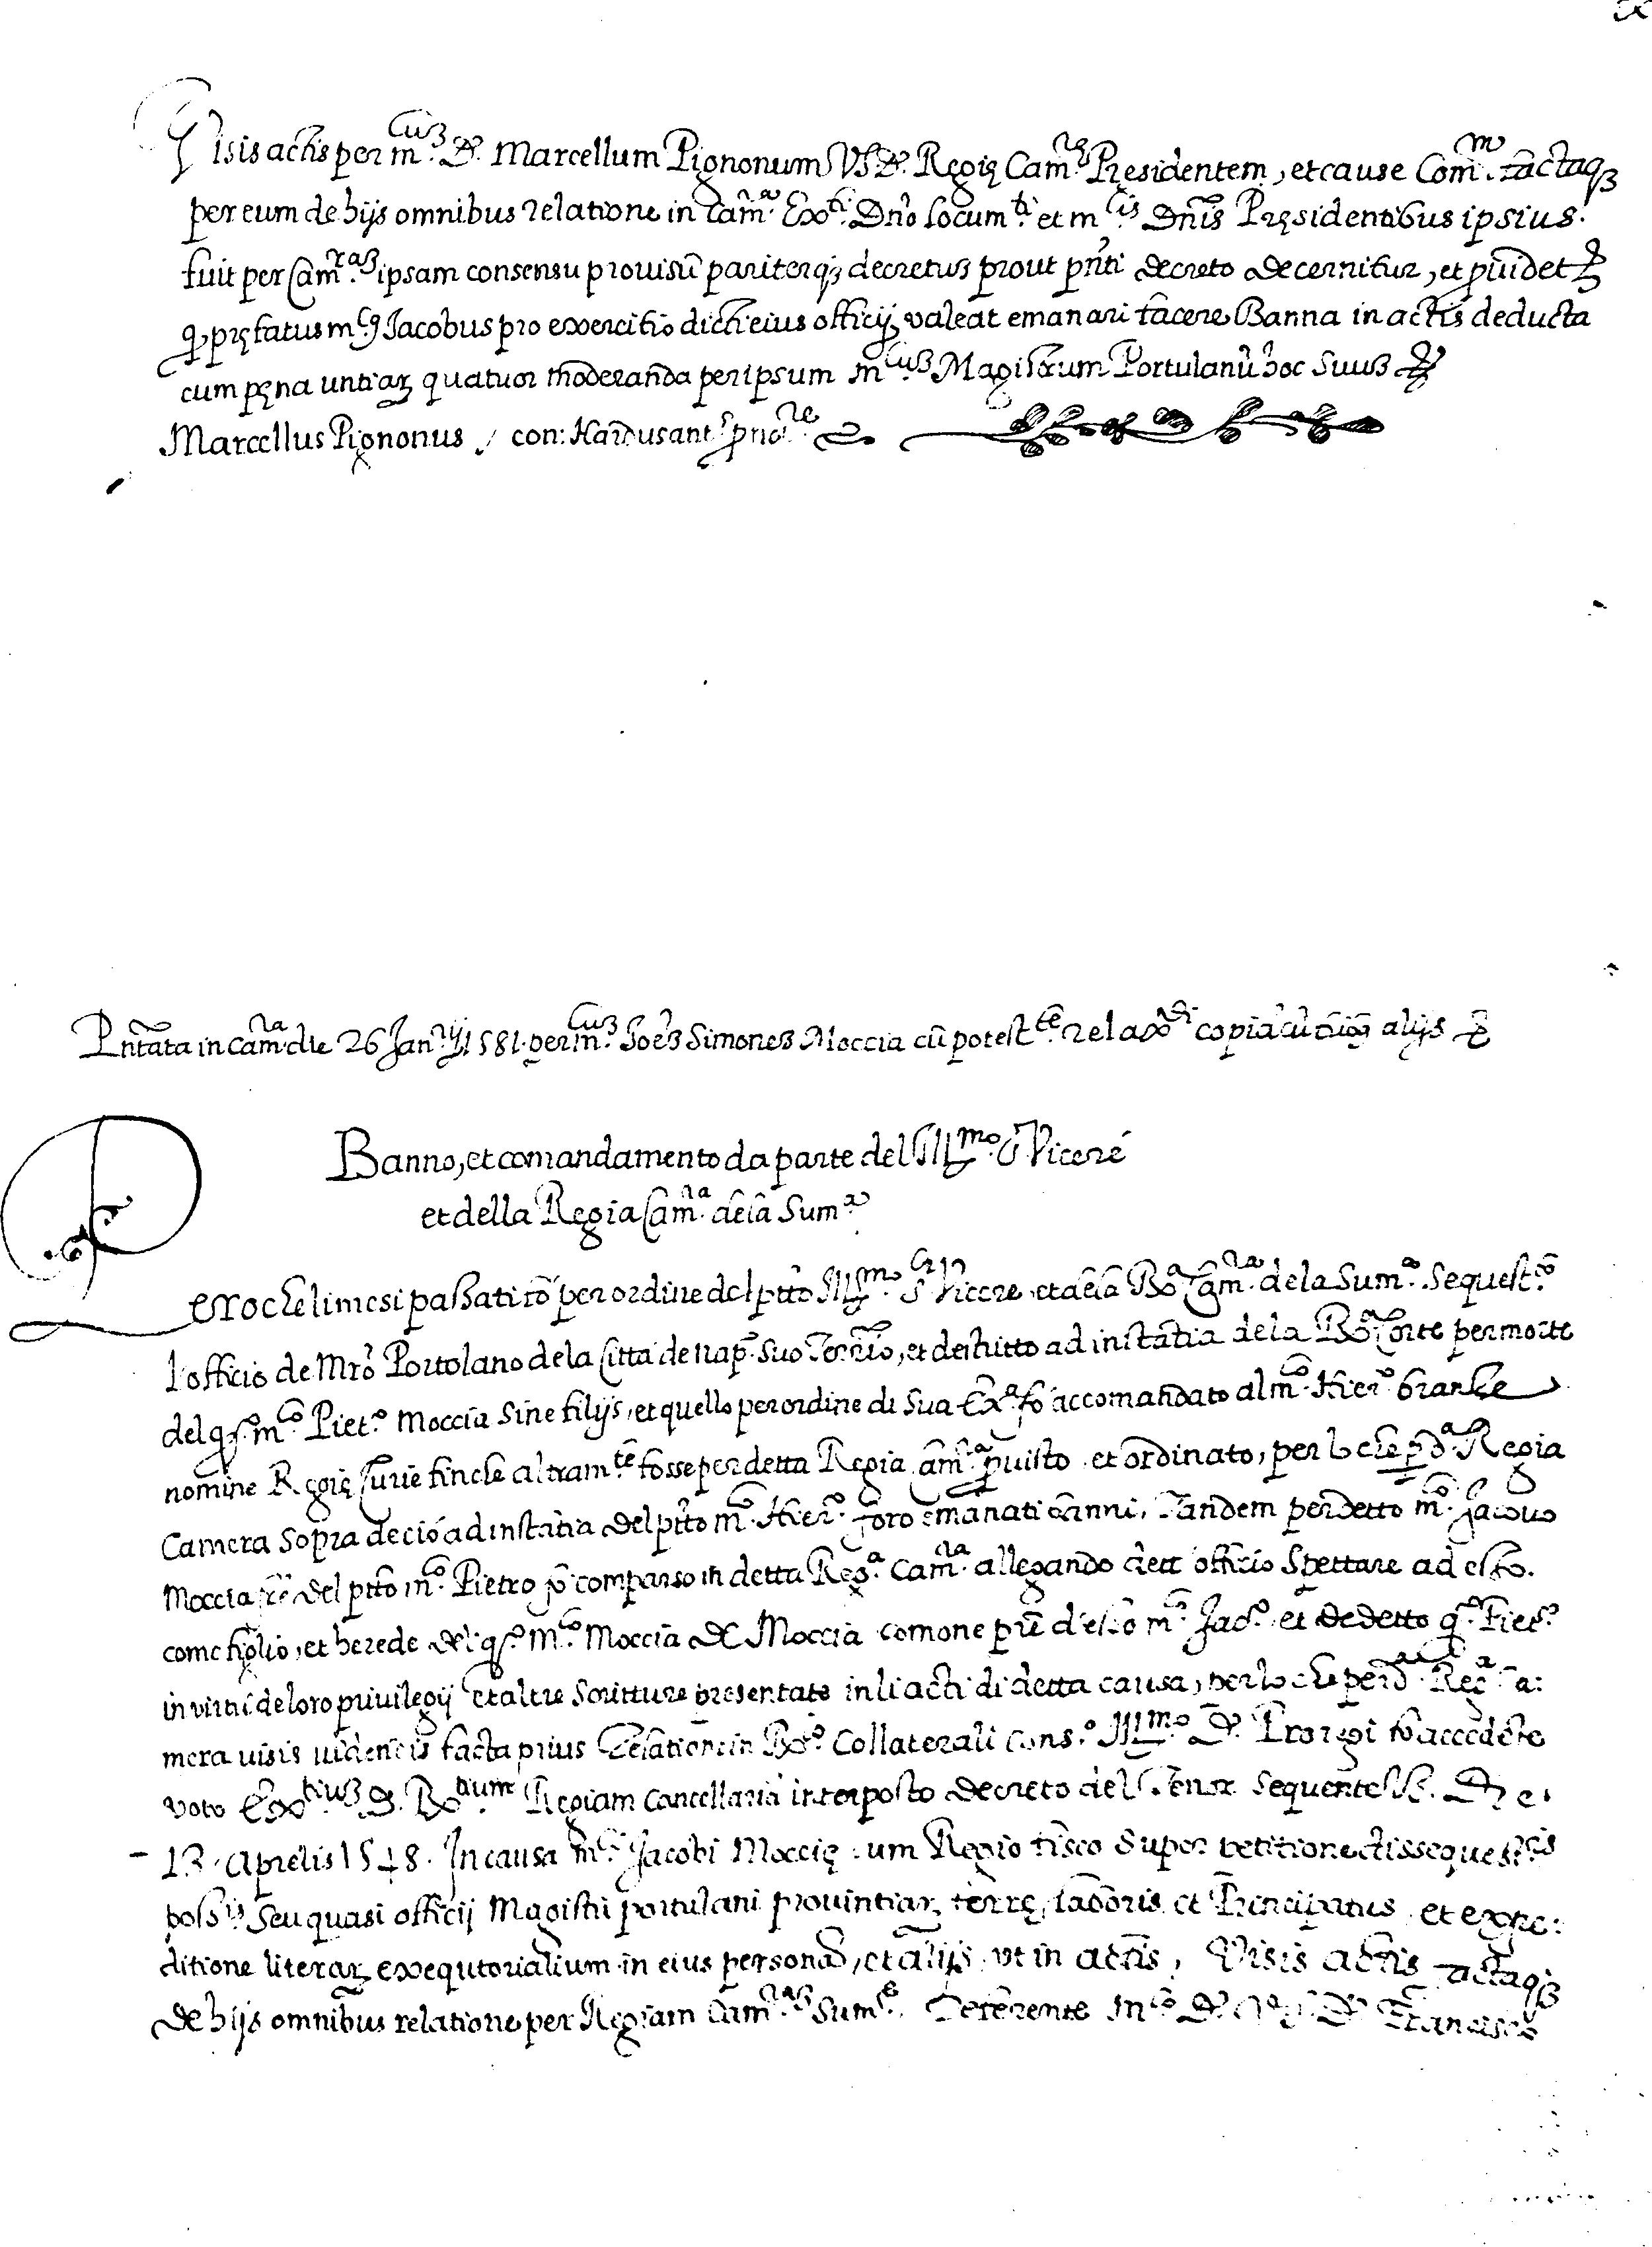 Visis actis per m.cus D. Marcellum Pignonum V.J.D. Regię Cam.rę Pręsidentem, et cause Com.m factaq3
per eum de hijs omnibus relatione in Cam.a Ex.ti Dn̄o locum.ti et m.cis Dn̄is Pręsidentibus ipsius.
fuit per Cam.ras ipsam consensu prouisū pariterq3 decretus prout pn̄ti decreto decernitur, et prūidet
q. pręfatus m.cus Jacobus pro exercitio dicti eius officij valeat emanari facere Banna in actis deducta
cum pęna untiar quatuor moderanda per ipsum m.cus Magistrum Portulanū hoc suus
Marcellus Pignonus
Pn̄tata in Cam.ra die 26 Jan.rij 1581. per m.cus Joēs Simones Moccia cū potest.te relax.di copia
Banno, et comandamento da parte del Ill.mo S. Viceré
et della Regia Cam.ra dela Sum.a
Perochel li mesi passati fō per ordine del p̄tto Ill.mo S.r Vicere, et dela R.a Cam.ra de la Sum.a sequest.to
l'officio de Mrō Portolano de la Citta de nap. suo Terr.io, et destritto ad instātia de la R.a Corte per morte
del q. m.co Piet.o Moccia sine filijs, et quello per ordine di sua Ex.a fō accomandato al m.co Hier.o branke
nomine Regię Curie finche altram.te fosse per detta Regia Cam.a puisto et ordinato, per lo che p d.a Regia
Camera sopra de ciò ad instātia del p̄tto m.co Hier.o foro emanati banni, Tandem per detto m.co Jacouo
Moccia frē del p̄tto m.co Pietro fō comparso in detta Reg.a Cam.ra allegando dett'officio spettare ad esso.
come figlio, et herede del q. m.co Moccia de Moccia comone prē d'esso m.co Jac.o et dedetto q. Piet.o
in virtù de loro priuilegij et altre scritture presentate in li acti di detta causa, per lo che per d.a Reg.a Ca:
mera uisis uidendis facta prius relatione in R.o Collaterali Cons.o Ill.mo D. Proregi fō accedente
voto Ex.tius D. R.tium Regiam Cancellariā interposto decreto del tenor sequente Die
13. Aprelis 1548. In causa m.ci Jacobi Moccię cum Regio fisco super petitione dissequest.nis
poss.nis seu quasi officij Magistri portulani prouintiar terrę laboris et Principatus et expe:
ditione literar exequtorialium in eius personā, et alijs ut in actis, Visis actis factaq3
de hijs omnibus relatione per Regiam Cam.ras Sum.e referente m.co D. Francisco